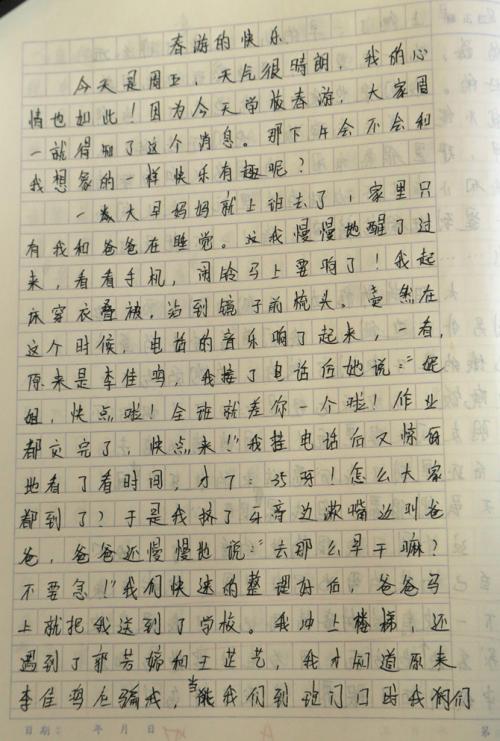 春游的快乐
今天是周五，天气很晴朗，我的心
情也如此！因为今天学校春游，大家周
一就得知了这个消息。那下午会不会和
我想象的一样快乐有趣呢？
一大早妈妈就上班去了，家里只
有我和爸爸在睡觉。我慢慢地醒了过
来，看看手机，闹铃马上要响了！我起
床穿衣叠被，当到镜子前梳头。竟然在
这个时候，电话的音乐响了起来，一看，
原来是李佳鸣，我接了电话后她说：“妮
姐，快点啦！全班就差你一个啦！作业
都交完了，快点来！”我挂电话后又惊讶
地看了看时间，才7：35呀！怎么大家
都到了？于是我挤了牙膏边漱嘴边叫爸
爸，爸爸还慢慢地说：“去那么早干嘛？
不要急！”我们快速的整理好后，爸爸马
上就把我送到了学校。我冲上楼梯，还
遇到了郭芳婷和王芷艺，我才知道原来
李佳鸣在骗我，当我们到班门口时我们
日期： 年 月 日
第